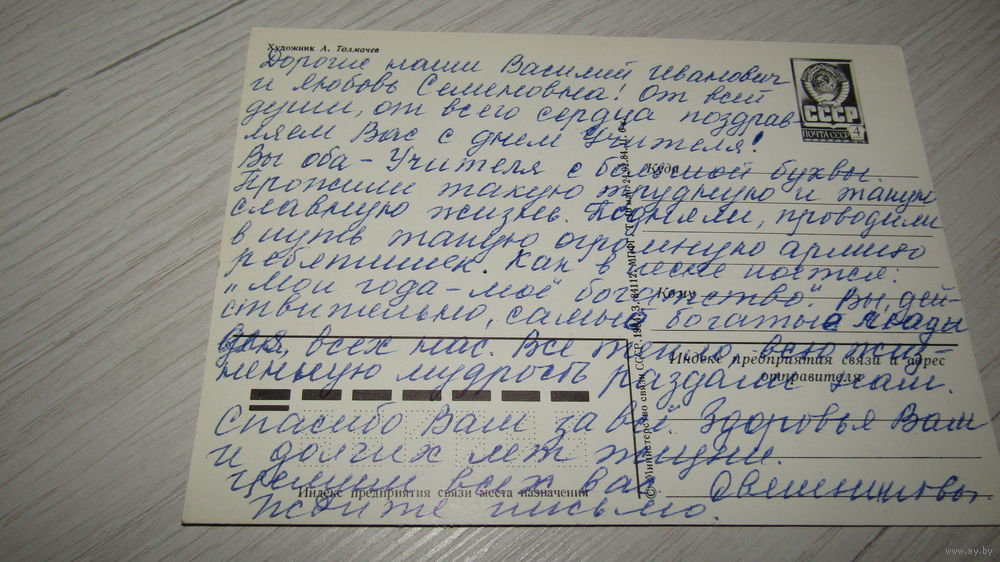 Художник А. Толмачев
Дорогие наши Василий Иванович
и Любовь Семеновна! От всей
души, от всего сердца поздрав-
ляем Вас с днем Учителя!
Вы оба - Учителя с большой буквы.
Прожили такую трудную и такую
славную жизнь. Подняли, проводили
в путь такую огромную армию
ребятишек. Как в песне поётся:
"мои года - моё богатство". Вы, дей-
ствительно, самые богатые люди
для всех нас. Все тепло, всю жиз-
ненную мудрость раздали нам.
Спасибо Вам за всё. Здоровья Вам
и долгих лет жизни.
Целуем всех вас
Ждите письмо.
СССР
ПОЧТА СССР
4
Куда
Кому
Индекс предприятия связи и адрес
отправителя
Индекс предприятия связи места назначения
© Министерство связи СССР, 1984. З. 84112. МПФГ.
www.ay.by